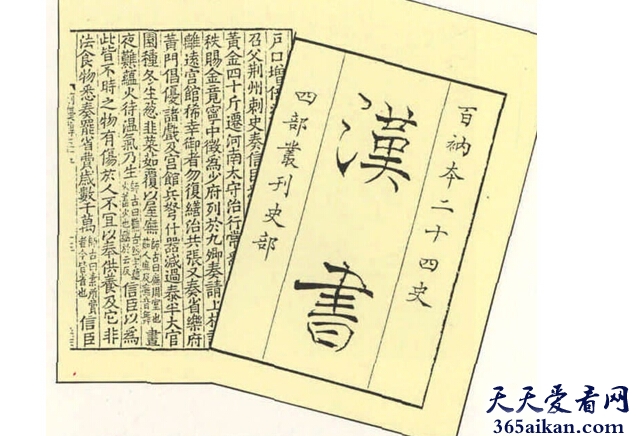 百衲本二十四史
漢書
四部叢刊史部
戶口增倍
召父荆州刺史奏信臣
黃金四十斤遷河南太守治行常
秩賜金竟寧中徵爲少府列於九卿奏請上林
離遠宮館稀幸御者勿復繕治共張又奏省樂府
黃門倡優諸戲及宮館兵弩什器減過泰半大官
園種冬生葱韭菜茹覆以屋廡 晝
夜難蘊火待溫氣乃生 信臣以爲
此皆不時之物有傷於人不宜以奉供養及它非
法食物悉奏罷省費歲數千萬 師古曰素所費者今皆省也 信臣
天天爱看网
365aikan.com